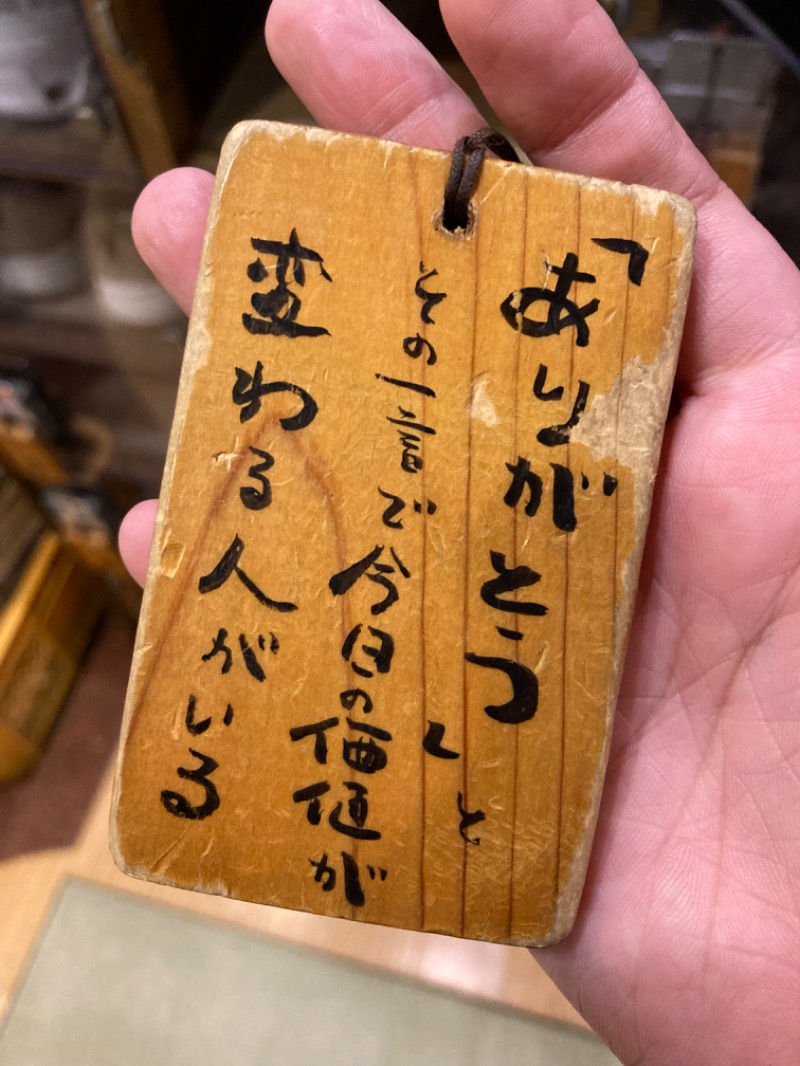 「ありがとう」と
その一言で今日の価値が
変わる人がいる